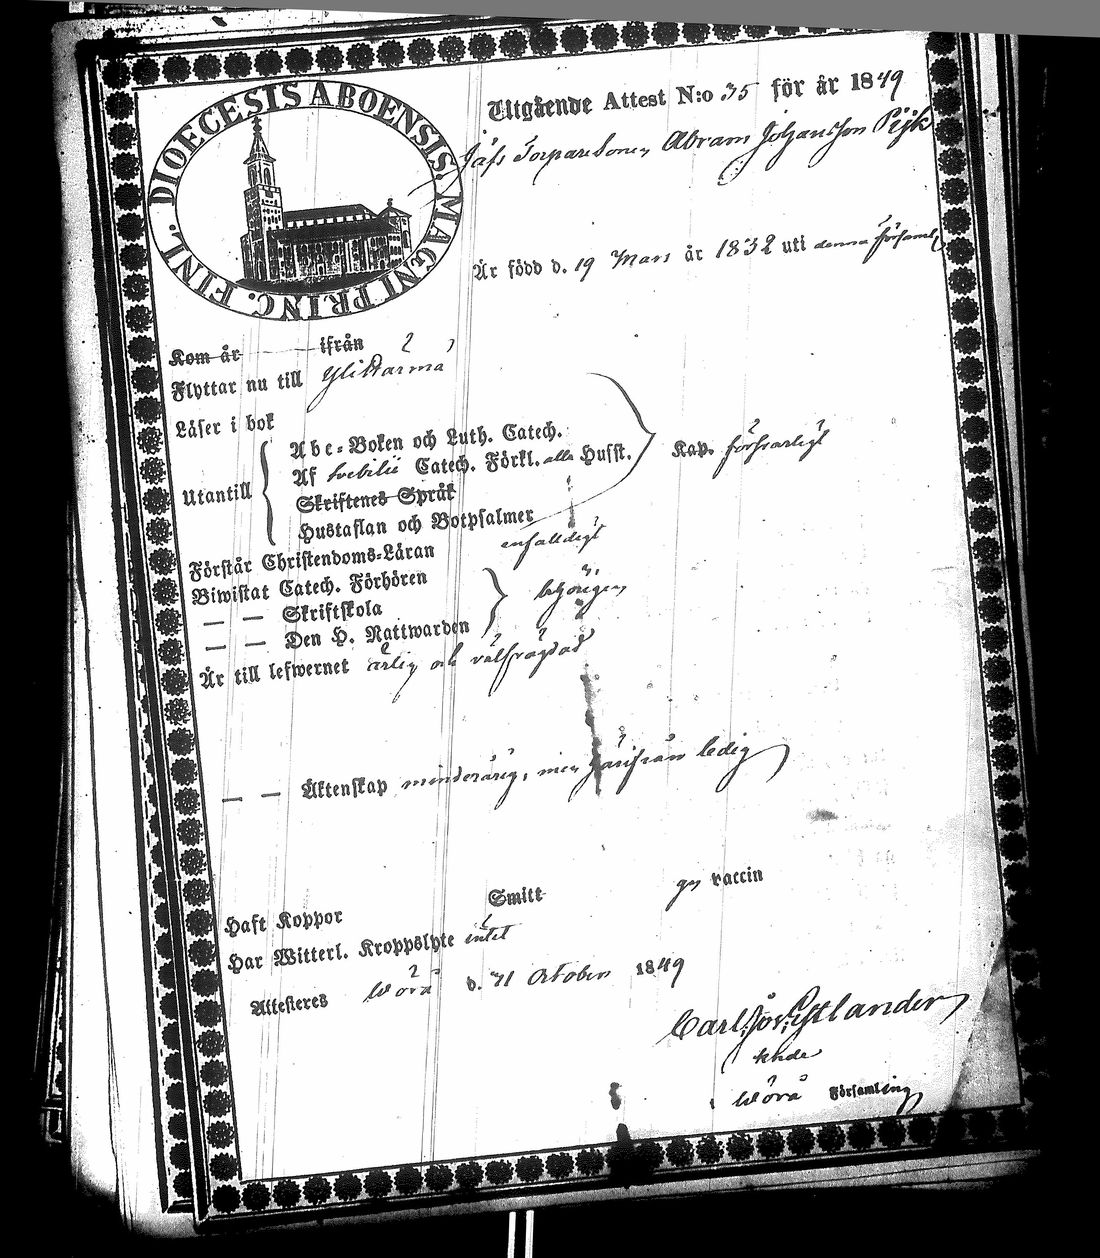 DIOECESIS ABOENSIS. MAGNI PRINC. FINL.
Utgående Attest N:o 35 för år 1849
Torparesonen Abram Johansson Pijk
Är född d. 19 Mars år 1832 uti denna Församl.
Kom år ifrån
Flyttar nu till Ylistarmå
Läser i bok
Utantill
Abc-Boken och Luth. Catech.
Af Svebilii Catech. Förkl. alla Hufst. Kap. försvarligt
Skriftenes Språk
Hustaflan och Botpsalmer
Förstår Christendoms-Läran enfaldigt
Biwistat Catech. Förhören
— — Skriftskola behörigen
— — Den H. Nattwarden
Är till lefwernet ärlig och välfrägdad
— — Äktenskap minderårig, men härifrån ledig
Haft Koppor Smitt gn vaccin
Har Witterl. Kroppslyte intet
Attesteres Wörå d. 31 October 1849
Carl Estlander
Wörå Församling